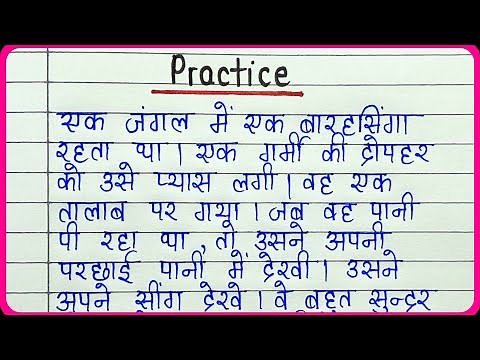 Practice
एक जंगल में एक बारहसिंगा
रहता था। एक गर्मी की दोपहर
को उसे प्यास लगी। वह एक
तालाब पर गया। जब वह पानी
पी रहा था, तो उसने अपनी
परछाई पानी में देखी। उसने
अपने सींग देखे। वे बहुत सुन्दर